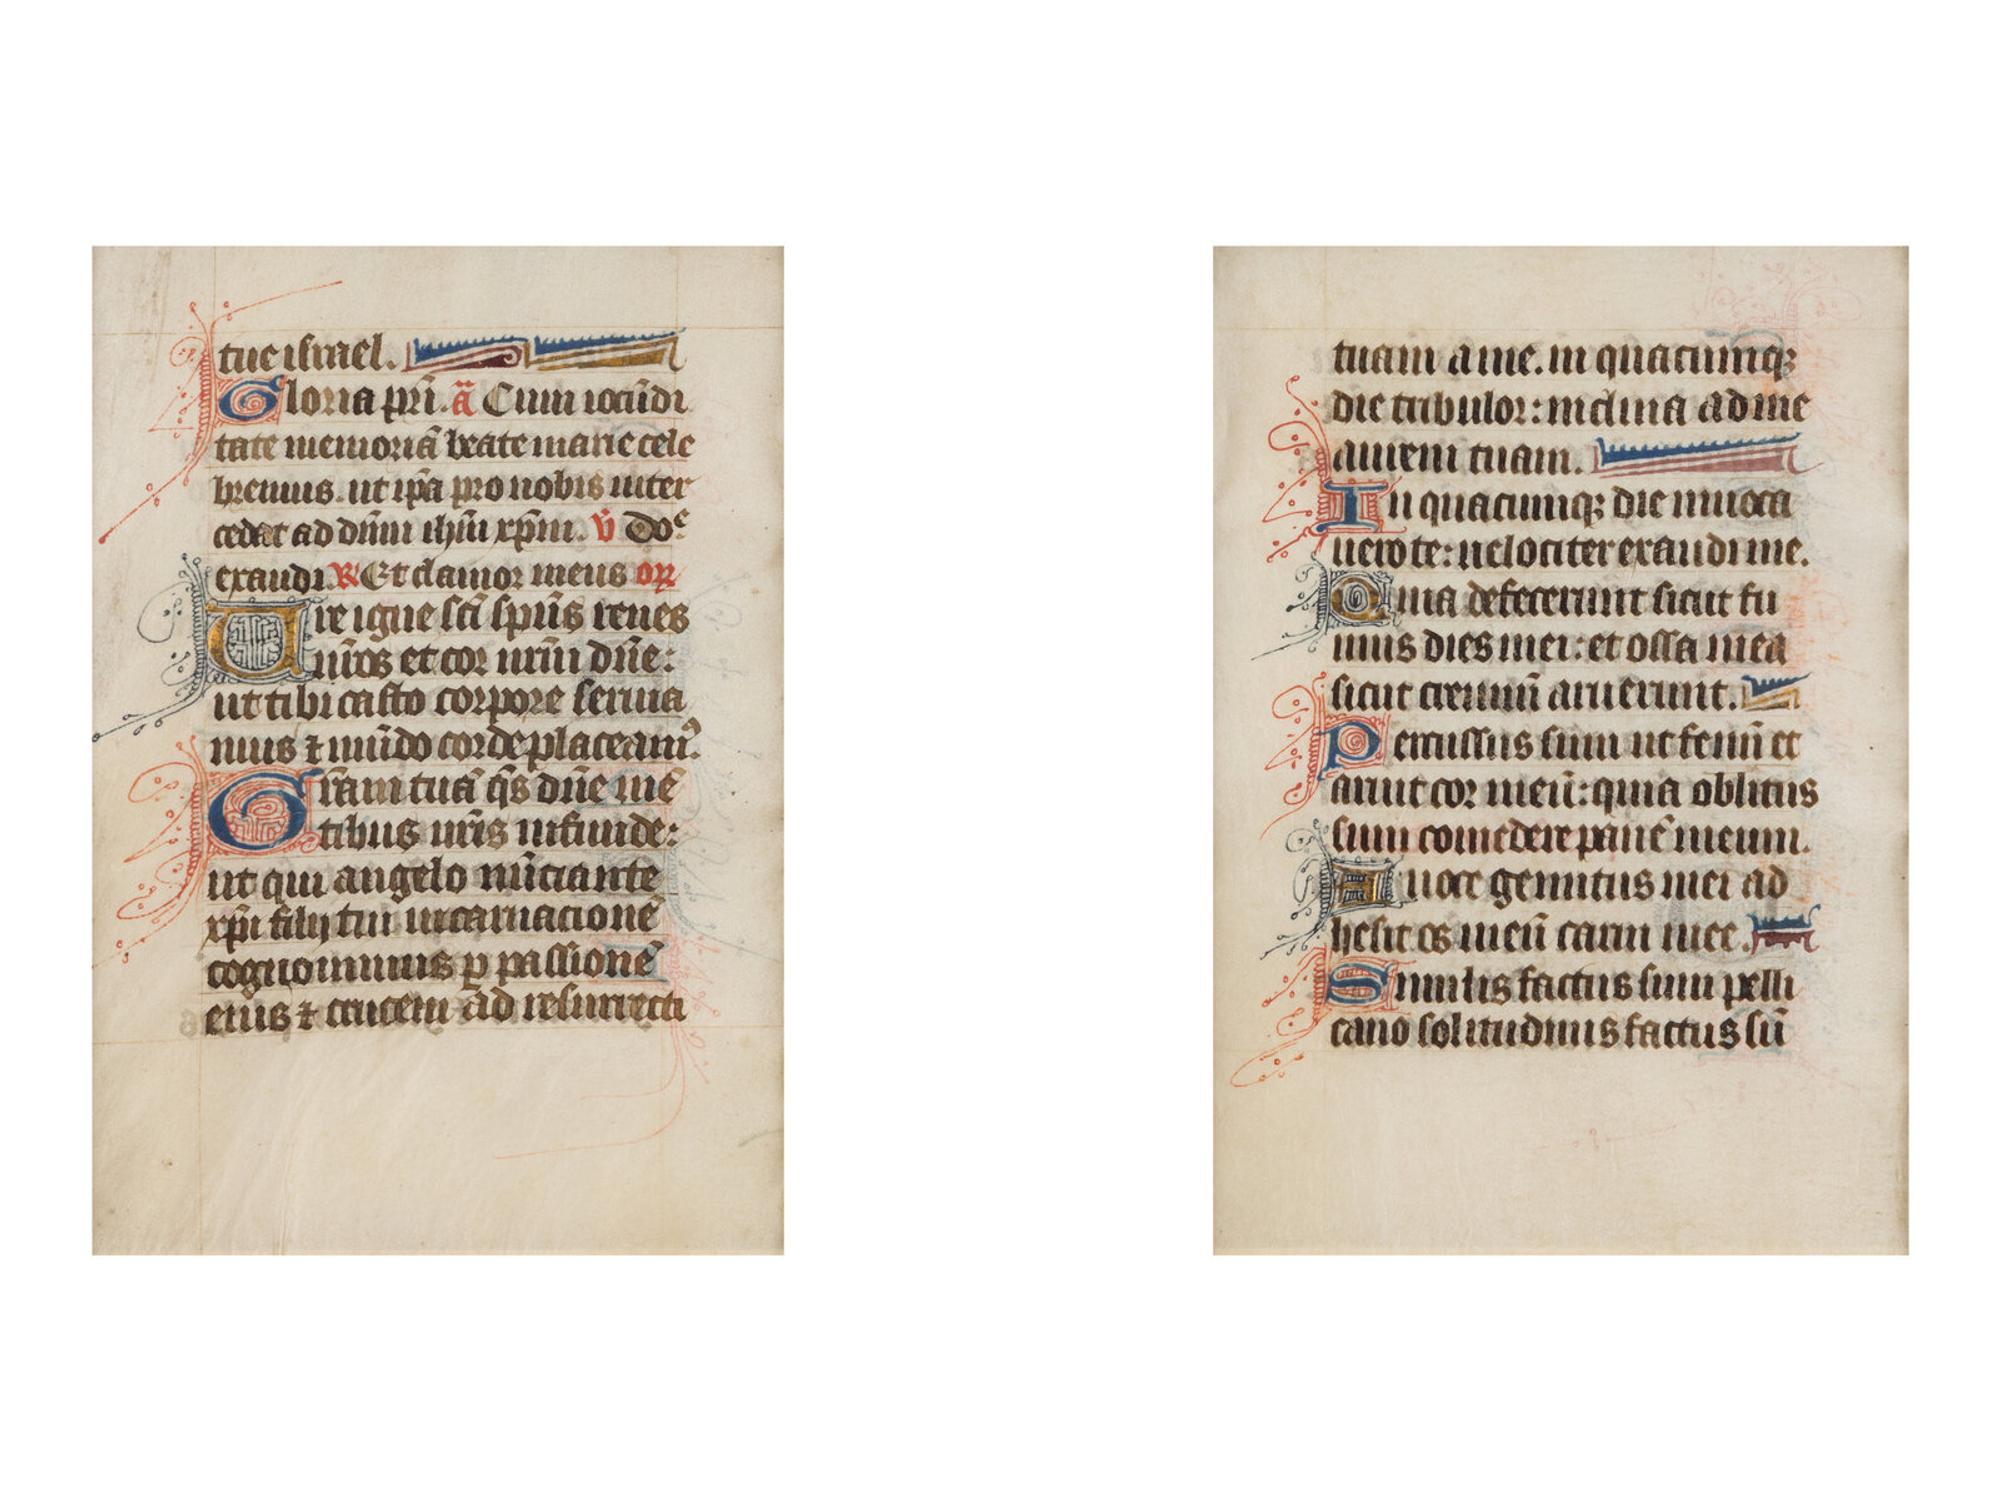 tue israel.
Gloria pr̄i. ā Cum iocūdi
tate memoriā beate marie cele
bremus. ut ip̄a pro nobis inter
cedat ad dn̄m ih̄m xp̄m. v̄ Doᵉ
exaudi. R Et clamor meus or̄
Ure igne sc̄i sp̄us renes
nr̄os et cor nr̄m dn̄e:
ut tibi casto corpore seruia
mus ⁊ mūdo corde placeamꝰ.
Gr̄am tuā q̄s dn̄e mē
tibus nr̄is infunde:
ut qui angelo nūciante
xp̄i filij tui incarnacionē
cognouimus ꝑ passionē
eius ⁊ crucem ad resurrecti
tuam a me. in quacumqꝫ
die tribulor: inclina ad me
aurem tuam.
In quacumqꝫ die inuoca
uero te: uelociter exaudi me.
Quia defecerunt sicut fu
mus dies mei: et ossa mea
sicut cremiū aruerunt.
Percussus sum ut fenū et
aruit cor meū: quia oblitus
sum comedere panē meum.
A uoce gemitus mei ad
hesit os meū carni mee.
Similis factus sum pelli
cano solitudinis factus sū